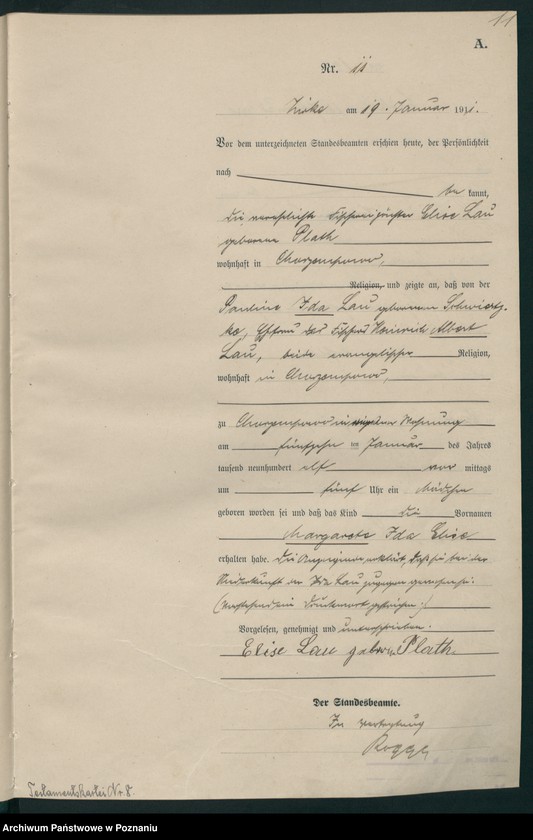 11
A.
Nr. 11
Zirke am 19. Januar 1911.
Vor dem unterzeichneten Standesbeamten erschien heute, der Persönlichkeit
nach
be kannt,
die verehelichte Elise Lau
geborene Plath
wohnhaft in
Religion, und zeigte an, daß von der
Pauline Ida Lau geborenen
Ehefrau des Fischers Heinrich Albert
Lau, beide evangelischer Religion,
wohnhaft in
zu in Wohnung
am fünfzehn ten Januar des Jahres
tausend neunhundert elf vor mittags
um fünf Uhr ein Mädchen
geboren worden sei und daß das Kind die Vornamen
Margarete Ida Elise
erhalten habe. Die Anzeigende erklärt, daß sie bei der
Niederkunft der Ida Lau zugegen gewesen sei.
(Vorstehend ein Druckwort gestrichen.)
Vorgelesen, genehmigt und unterschrieben.
Elise Lau geborne Plath.
Der Standesbeamte.
In Vertretung
Rogge
Testamentskartei Nr. 8.
Archiwum Państwowe w Poznaniu